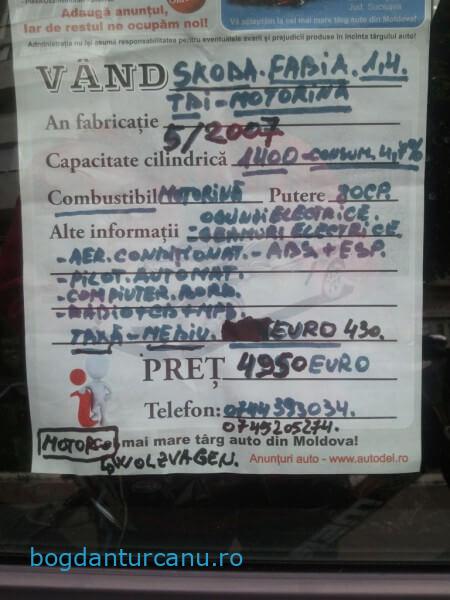 Adaugă anunțul,
Iar de restul ne ocupăm noi!
Jud. Suceava
Vă așteptăm la cel mai mare târg auto din Moldova!
Administrația nu își asumă responsabilitatea pentru eventualele avarii și prejudicii produse în incinta târgului auto!
VÂND SKODA.FABIA.1,4.
TDI-MOTORINA
An fabricație 5/2007
Capacitate cilindrică 1400-CONSUM.4,7%
Combustibil MOTORINĂ Putere 80CP.
OGLINZI ELECTRICE.
Alte informații -GEAMURI ELECTRICE
-AER.CONDIȚIONAT.-ABS+ESP.
-PILOT.AUTOMAT.
-COMPIUTER.BORD.
-RADIO+CD+MP3.
TAXĂ-MEDIU. EURO 430.
PREȚ 4950 EURO
Telefon: 0744393034.
0745205274.
MOTOR mai mare târg auto din Moldova!
WOLZVAGEN.
Anunțuri auto - www.autodel.ro
bogdanturcanu.ro